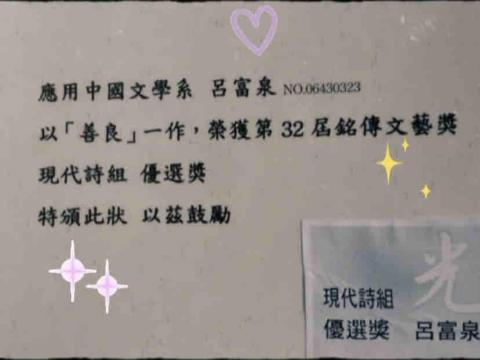 應用中國文學系 呂富泉 NO.06430323
以「善良」一作，榮獲第 32 屆銘傳文藝獎
現代詩組 優選獎
特頒此狀 以茲鼓勵
光
現代詩組
優選獎 呂富泉